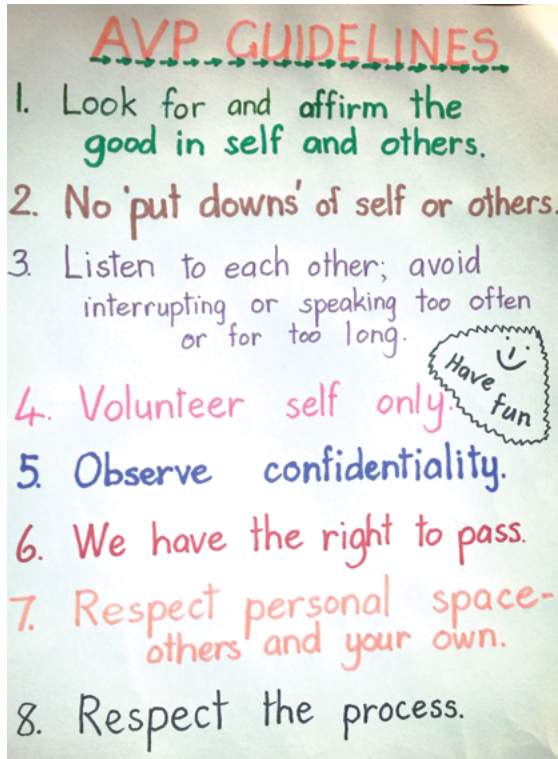 AVP GUIDELINES
1. Look for and affirm the
good in self and others.
2. No 'put downs' of self or others.
3. Listen to each other; avoid
interrupting or speaking too often
or for too long.
Have
fun
4. Volunteer self only.
5. Observe confidentiality.
6. We have the right to pass.
7. Respect personal space-
others' and your own.
8. Respect the process.